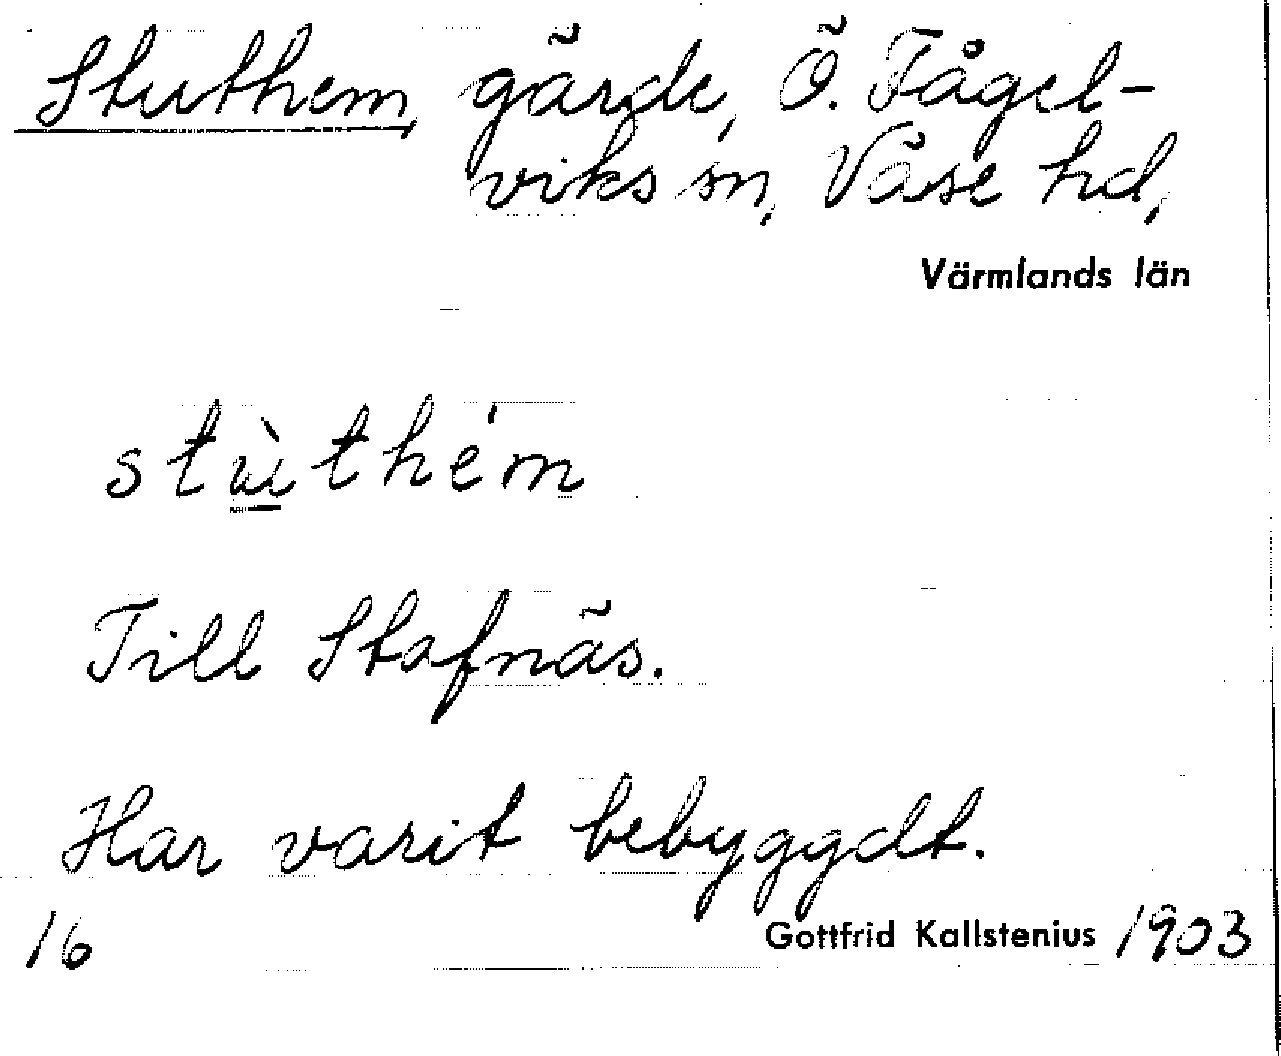 Stuthem, gärde, Ö. Fågel-
viks sn, Väse hd,
Värmlands län
stù̲thém
Till Stafnäs.
Har varit bebyggdt.
16 Gottfrid Kallstenius 1903